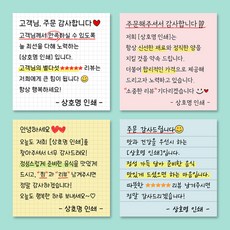 고객님, 주문 감사합니다♥
고객님께서 만족하실 수 있도록
늘 최선을 다해 노력하는
[상호명 인쇄] 입니다.
고객님의 별다섯 ★★★★★ 리뷰는
저희에게 큰 힘이 됩니다
항상 행복하세요!
- 상호명 인쇄 -
주문해주셔서 감사합니다
저희 [상호명 인쇄]는
항상 신선한 재료로 정직한 맛을
지킬 것을 약속 드립니다.
더불어 합리적인 가격으로 제공해
드리고자 노력하고 있습니다!
"소중한 리뷰" 기다리겠습니다♥
- 상호명 인쇄 -
안녕하세요♥
오늘도 저희 [상호명 인쇄]을
찾아주셔서 너무 감사드려요!
정성스럽게 준비한 음식을 맛있게
드시고, "찜"과 "리뷰" 남겨주시면
정말 감사하겠습니다!
오늘도 행복한 하루 보내세요~♡
- 상호명 인쇄 -
주문 감사드립니다
맛과 건강을 우선시 하는
[상호명 인쇄] 입니다.
정성 가득 담아 준비한 음식
맛있게 드셨으면 하는 마음입니다.
따뜻한 ★★★★★ 리뷰 남겨주시면
정말 감사드리겠습니다!
- 상호명 인쇄 -